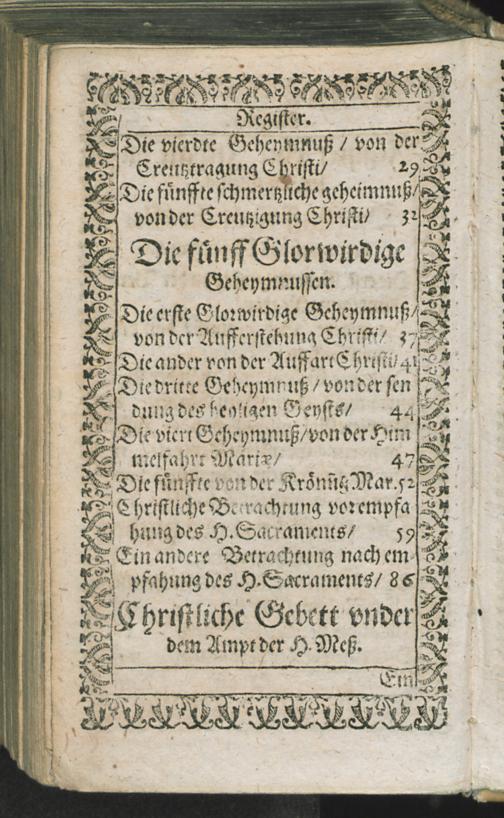 Register.
Die vierdte Geheymnuß / von der
Creutztragung Christi/ 29
Die fünffte schmertzliche geheimnuß/
von der Creutzigung Christi/ 32
Die fünff Glorwirdige
Geheymnussen.
Die erste Glorwirdige Geheymnuß/
von der Aufferstehung Christi/ 37
Die ander von der Auffart Christi/ 41
Die dritte Geheymnuß / von der sen
dung des heyligen Geysts/ 44
Die viert Geheymnuß/von der Him
melfahrt Mariæ/ 47
Die fünffte von der Krönũg Mar. 52
Christliche Betrachtung vor empfa
hung des H. Sacraments/ 59
Ein andere Betrachtung nach em-
pfahung des H. Sacraments/ 86
Christliche Gebett vnder
dem Ampt der H. Meß.
Ein